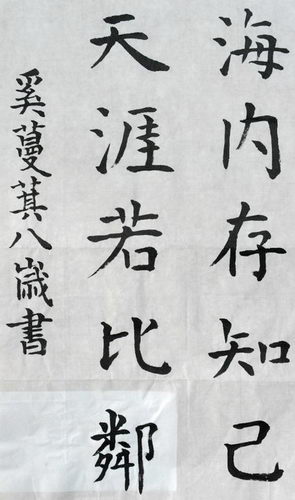 海内存知己
天涯若比鄰
奚蔓萁八歲書